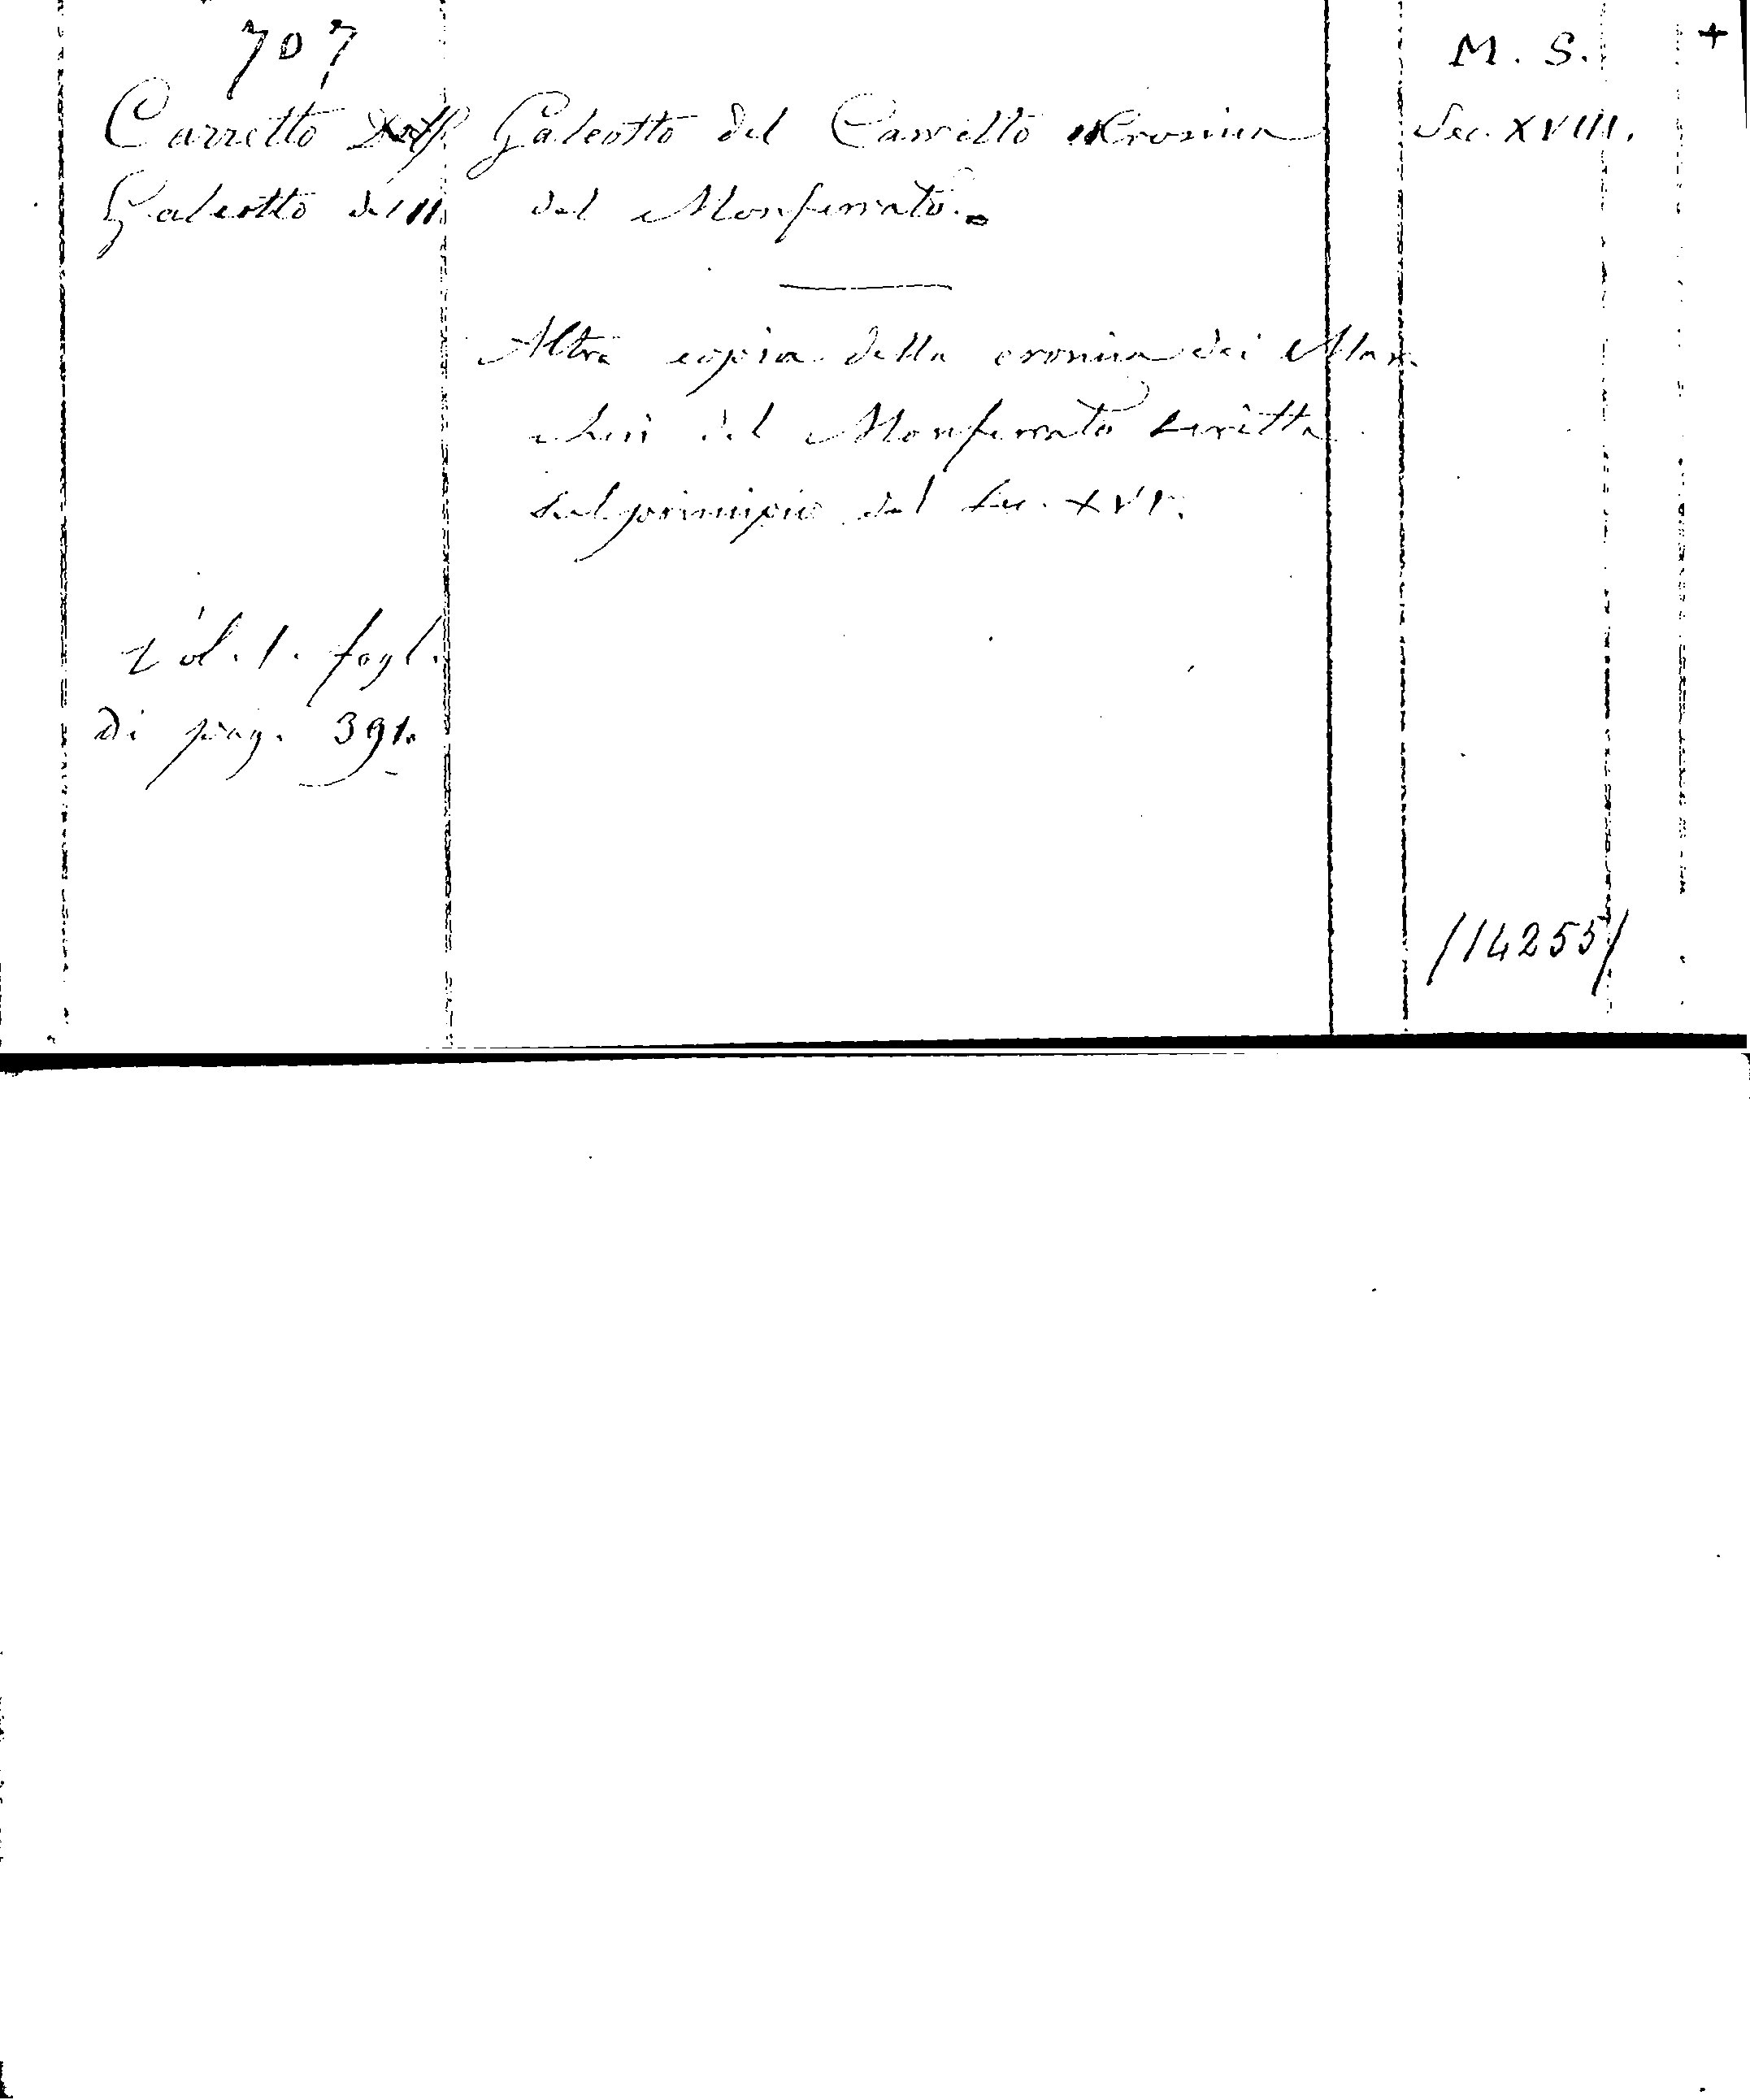 707
M. S. +
Carretto
Galeotto del
Galeotto del Carretto Cronica
del Monferrato.
Sec. XVIII.
Altra copia della cronica dei Mar-
chesi del Monferrato scritta
sul principio del Sec. XVI.
Vol. 1. fogl.
di pag. 391.
/14255/